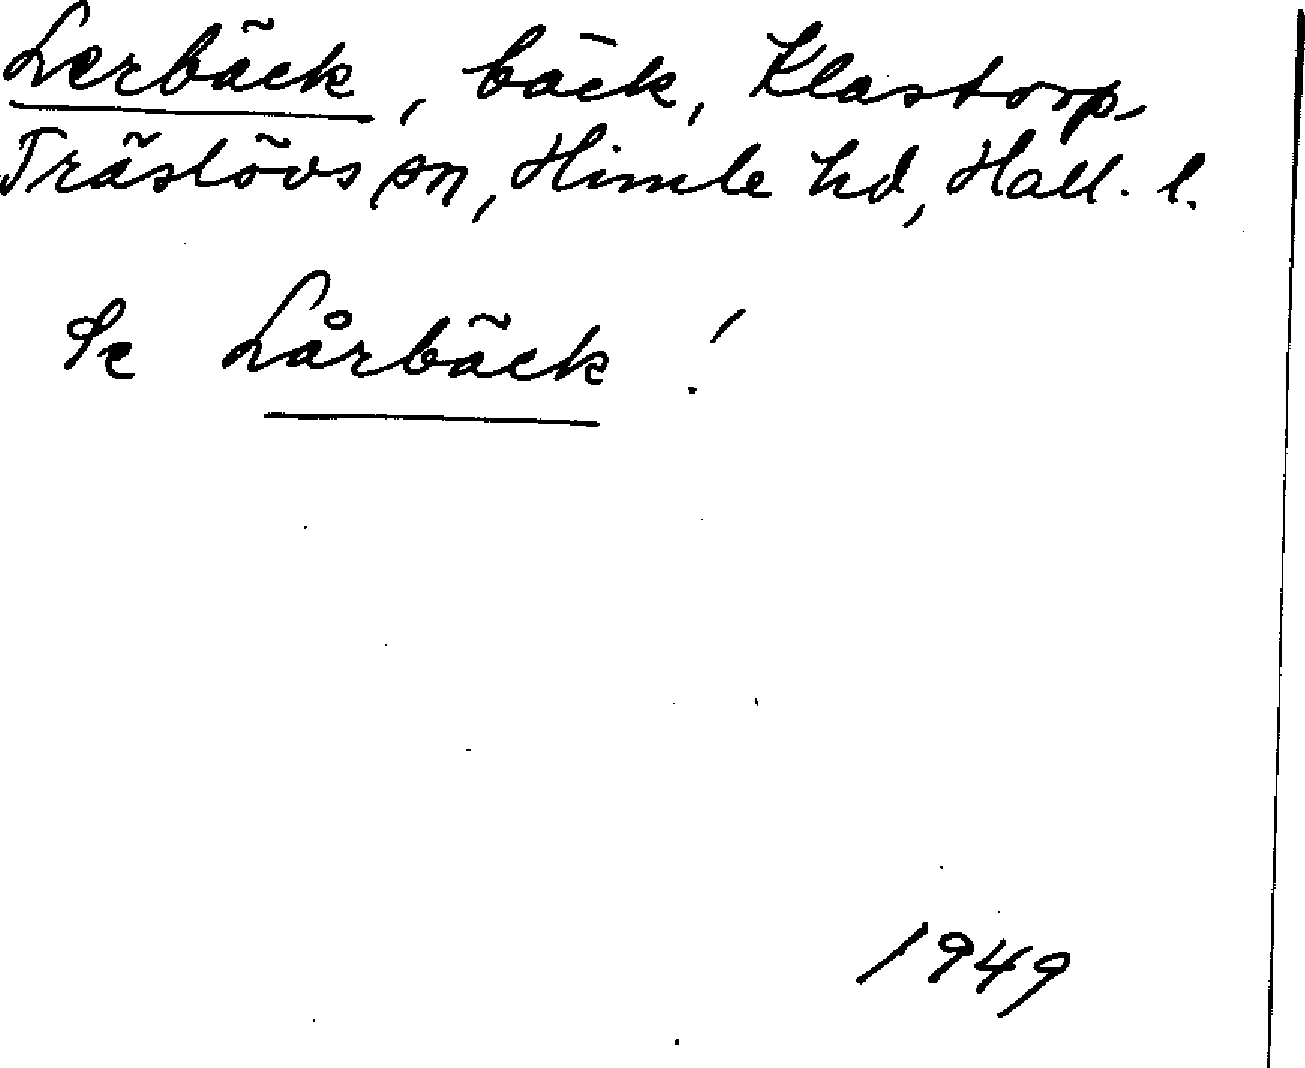 Lerbäck, bäck, Klastorp,
Träslövs sn, Himle hd, Hall. l.
Se Lårbäck!
1949